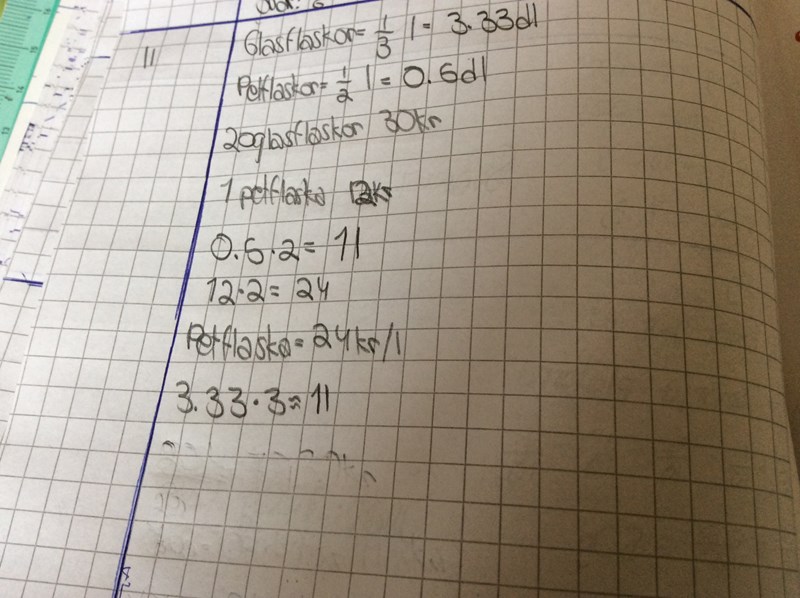 11
Glasflaskor= 1/3 l = 3.33dl
Petflaskor= 1/2 l = 0.5dl
20glasflaskor 30kr
1 petflaska 12kr
0.5·2= 1l
12·2= 24
Petflaska= 24kr/l
3.33·3≈ 1l